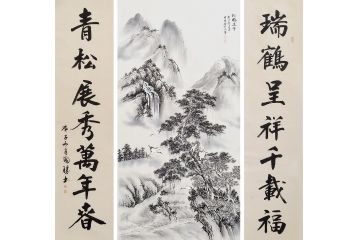 瑞鶴呈祥千載福
青松展秀萬年春